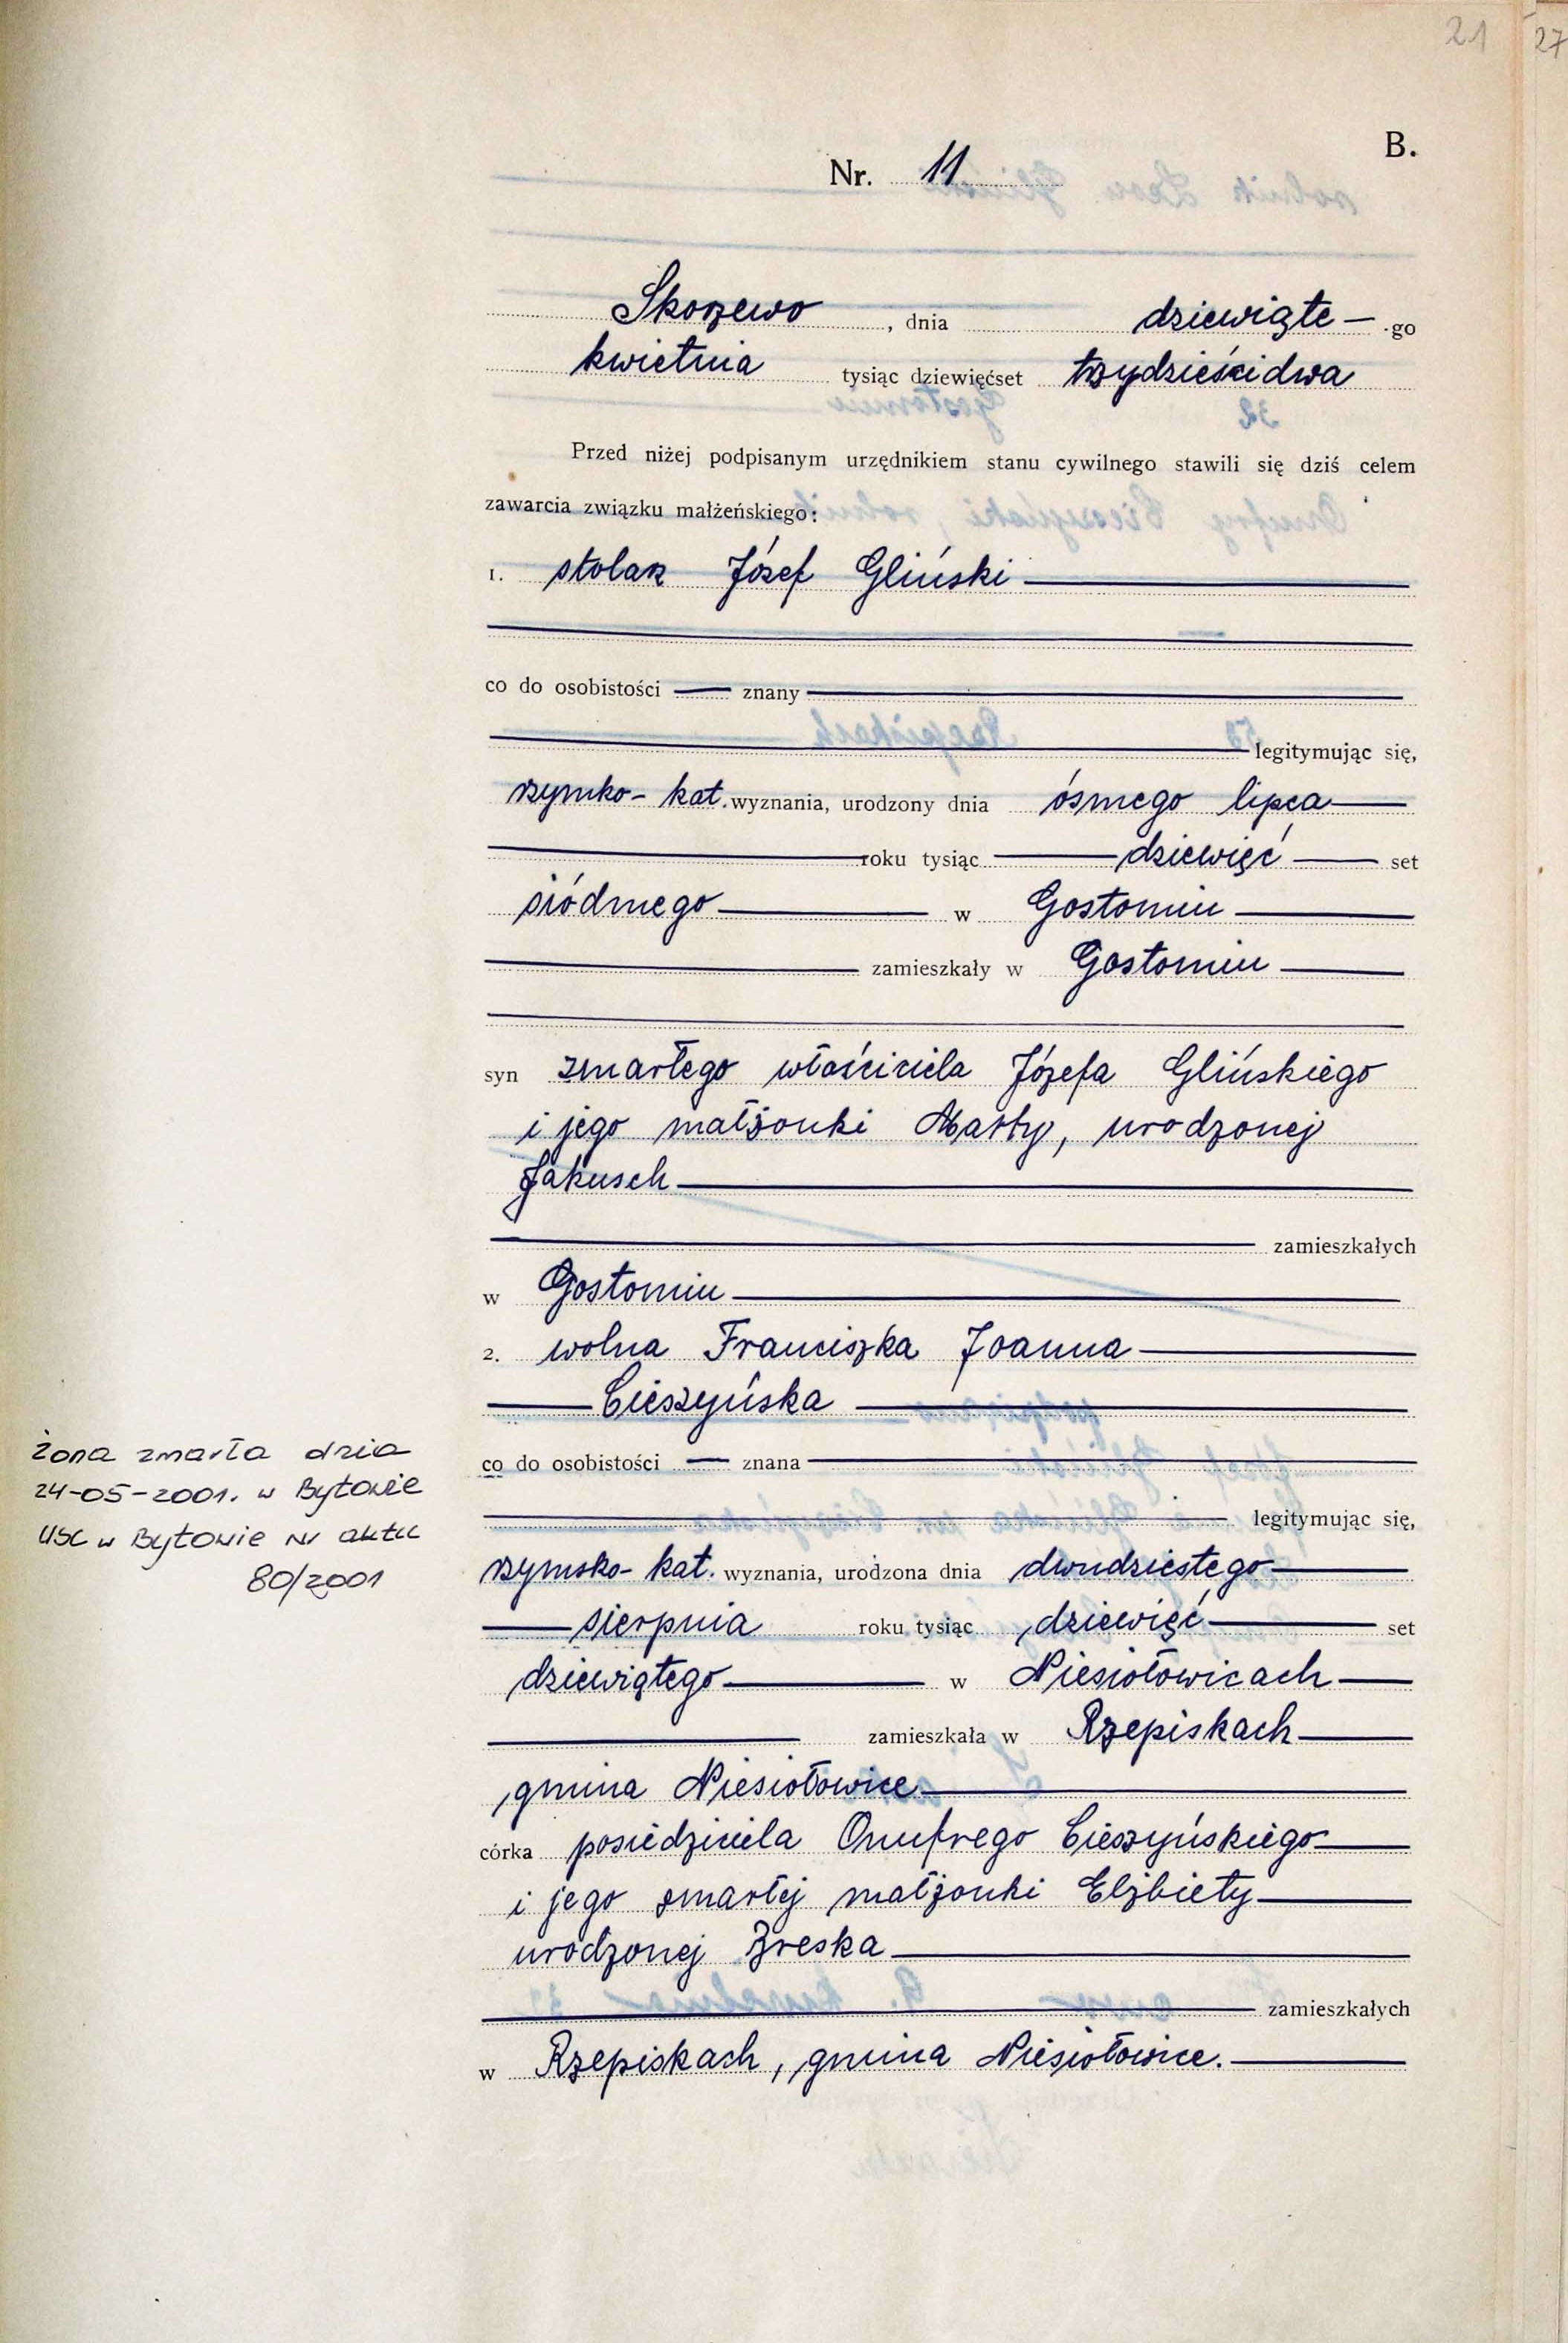 21
27
B.
Nr. 11
Skorzewo, dnia dziewiąte-go
kwietnia tysiąc dziewięćset trzydzieści dwa
Przed niżej podpisanym urzędnikiem stanu cywilnego stawili się dziś celem
zawarcia związku małżeńskiego:
1. stolarz Józef Gliński
co do osobistości znany
legitymując się,
rzymko-kat. wyznania, urodzony dnia ósmego lipca
roku tysiąc dziewięć set
siódmego w Gostomiu
zamieszkały w Gostomiu
syn zmarłego właściciela Józefa Glińskiego
i jego małżonki Marty, urodzonej
Jakusch
zamieszkałych
w Gostomiu
2. wolna Franciszka Joanna
Cieszyńska
co do osobistości znana
legitymując się,
rzymsko-kat. wyznania, urodzona dnia dwudziestego
sierpnia roku tysiąc dziewięć set
dziewiątego w Niesiołowicach
zamieszkała w Rzepiskach
gmina Niesiołowice
córka posiedziciela Onufrego Cieszyńskiego
i jego zmarłej małżonki Elżbiety
urodzonej Zreska
zamieszkałych
w Rzepiskach, gmina Niesiołowice.
żona zmarła dnia
24-05-2001. w Bytowie
USC w Bytowie nr aktu
80/2001